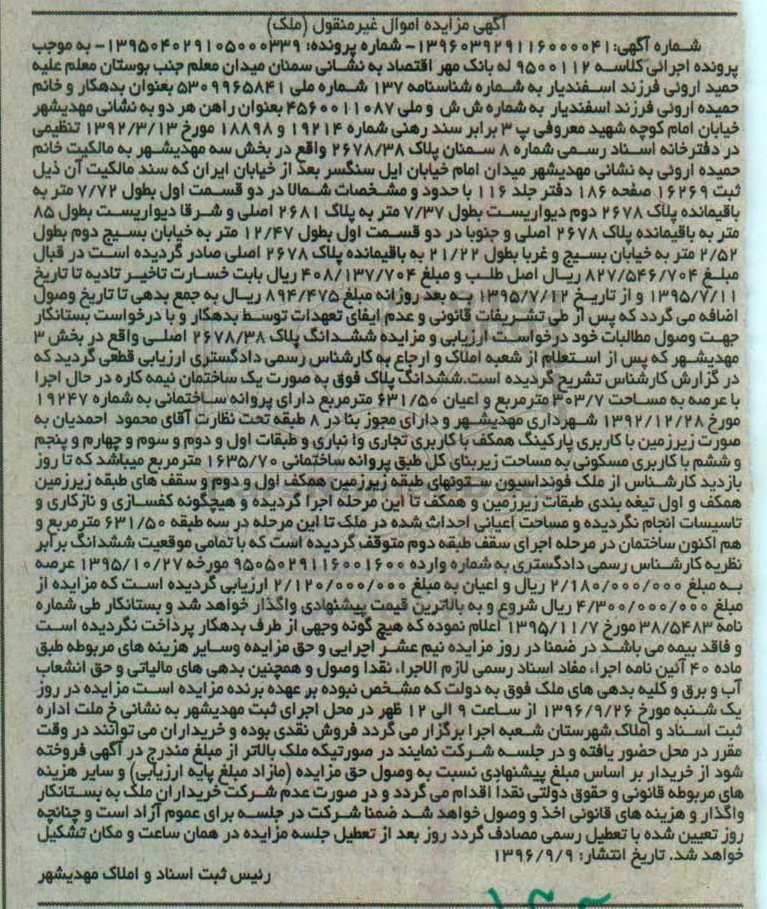 آگهی مزایده اموال غیرمنقول (ملک)
شماره آگهی: ۱۳۹۶۰۳۹۲۹۱۱۶۰۰۰۰۴۱- شماره پرونده: ۱۳۹۵۰۴۰۲۹۱۰۵۰۰۰۳۳۹- به موجب
پرونده اجرائی کلاسه ۹۵۰۰۱۱۲ له بانک مهر اقتصاد به نشانی سمنان میدان معلم جنب بوستان معلم علیه
حمید ارونی فرزند اسفندیار به شماره شناسنامه ۱۳۷ شماره ملی ۵۳۰۹۹۶۵۸۴۱ بعنوان بدهکار و خانم
حمیده ارونی فرزند اسفندیار به شماره ش ش و ملی ۴۵۶۰۰۱۱۰۸۷ بعنوان راهن هر دو به نشانی مهدیشهر
خیابان امام کوچه شهید معروفی پ ۳ برابر سند رهنی شماره ۱۹۲۱۴ و ۱۸۸۹۸ مورخ ۱۳۹۲/۳/۱۳ تنظیمی
در دفترخانه اسناد رسمی شماره ۸ سمنان پلاک ۲۶۷۸/۳۸ واقع در بخش سه مهدیشهر به مالکیت خانم
حمیده ارونی به نشانی مهدیشهر میدان امام خیابان ایل سنگسر بعد از خیابان ایران که سند مالکیت آن ذیل
ثبت ۱۶۲۶۹ صفحه ۱۸۶ دفتر جلد ۱۱۶ با حدود و مشخصات شمالا در دو قسمت اول بطول ۷/۷۲ متر به
باقیمانده پلاک ۲۶۷۸ دوم دیواریست بطول ۷/۳۷ متر به پلاک ۲۶۸۱ اصلی و شرقا دیواریست بطول ۸۵
متر به باقیمانده پلاک ۲۶۷۸ اصلی و جنوبا در دو قسمت اول بطول ۱۲/۴۷ متر به خیابان بسیج دوم بطول
۲/۵۲ متر به خیابان بسیج و غربا بطول ۲۱/۲۲ به باقیمانده پلاک ۲۶۷۸ اصلی صادر گردیده است در قبال
مبلغ ۸۲۷/۵۴۶/۷۰۴ ریال اصل طلب و مبلغ ۴۰۸/۱۳۷/۷۰۴ ریال بابت خسارت تاخیر تادیه تا تاریخ
۱۳۹۵/۷/۱۱ و از تاریخ ۱۳۹۵/۷/۱۲ به بعد روزانه مبلغ ۸۹۴/۴۷۵ ریال به جمع بدهی تا تاریخ وصول
اضافه می گردد که پس از طی تشریفات قانونی و عدم ایفای تعهدات توسط بدهکار و با درخواست بستانکار
جهت وصول مطالبات خود درخواست ارزیابی و مزایده ششدانگ پلاک ۲۶۷۸/۳۸ اصلی واقع در بخش ۳
مهدیشهر که پس از استعلام از شعبه املاک و ارجاع به کارشناس رسمی دادگستری ارزیابی قطعی گردید که
در گزارش کارشناس تشریح گردیده است.ششدانگ پلاک فوق به صورت یک ساختمان نیمه کاره در حال اجرا
با عرصه به مساحت ۳۰۳/۷ مترمربع و اعیان ۶۳۱/۵۰ مترمربع دارای پروانه ساختمانی به شماره ۱۹۲۴۷
مورخ ۱۳۹۲/۱۲/۲۸ شهرداری مهدیشهر و دارای مجوز بنا در ۸ طبقه تحت نظارت آقای محمود احمدیان به
صورت زیرزمین با کاربری پارکینگ همکف با کاربری تجاری وا نباری و طبقات اول و دوم و سوم و چهارم و پنجم
و ششم با کاربری مسکونی به مساحت زیربنای کل طبق پروانه ساختمانی ۱۶۳۵/۷۰ مترمربع میباشد که تا روز
بازدید کارشناس از ملک فونداسیون ستونهای طبقه زیرزمین همکف اول و دوم و سقف های طبقه زیرزمین
همکف و اول تیغه بندی طبقات زیرزمین و همکف تا این مرحله اجرا گردیده و هیچگونه کفسازی و نازکاری و
تاسیسات انجام نگردیده و مساحت اعیانی احداث شده در ملک تا این مرحله در سه طبقه ۶۳۱/۵۰ مترمربع و
هم اکنون ساختمان در مرحله اجرای سقف طبقه دوم متوقف گردیده است که با تمامی موقعیت ششدانگ برابر
نظریه کارشناس رسمی دادگستری به شماره وارده ۹۵۰۵۰۲۹۱۱۶۰۰۱۶۰۰ مورخه ۱۳۹۵/۱۰/۲۷ عرصه
به مبلغ ۲/۱۸۰/۰۰۰/۰۰۰ ریال و اعیان به مبلغ ۲/۱۲۰/۰۰۰/۰۰۰ ارزیابی گردیده است که مزایده از
مبلغ ۴/۳۰۰/۰۰۰/۰۰۰ ریال شروع و به بالاترین قیمت پیشنهادی واگذار خواهد شد و بستانکار طی شماره
نامه ۳۸/۵۴۸۳ مورخ ۱۳۹۵/۱۱/۷ اعلام نموده که هیچ گونه وجهی از طرف بدهکار پرداخت نگردیده است
و فاقد بیمه می باشد در ضمنا در روز مزایده نیم عشر اجرایی و حق مزایده وسایر هزینه های مربوطه طبق
ماده ۴۰ آئین نامه اجراء مفاد اسناد رسمی لازم الاجراء نقدا وصول و همچنین بدهی های مالیاتی و حق انشعاب
آب و برق و کلیه بدهی های ملک فوق به دولت که مشخص نبوده بر عهده برنده مزایده است مزایده در روز
یک شنبه مورخ ۱۳۹۶/۹/۲۶ از ساعت ۹ الی ۱۲ ظهر در محل اجرای ثبت مهدیشهر به نشانی خ ملت اداره
ثبت اسناد و املاک شهرستان شعبه اجرا برگزار می گردد فروش نقدی بوده و خریداران می توانند در وقت
مقرر در محل حضور یافته و در جلسه شرکت نمایند در صورتیکه ملک بالاتر از مبلغ مندرج در آگهی فروخته
شود از خریدار بر اساس مبلغ پیشنهادی نسبت به وصول حق مزایده (مازاد مبلغ پایه ارزیابی) و سایر هزینه
های مربوطه قانونی و حقوق دولتی نقدا اقدام می گردد و در صورت عدم شرکت خریداران ملک به بستانکار
واگذار و هزینه های قانونی اخذ و وصول خواهد شد ضمنا شرکت در جلسه برای عموم آزاد است و چنانچه
روز تعیین شده با تعطیل رسمی مصادف گردد روز بعد از تعطیل جلسه مزایده در همان ساعت و مکان تشکیل
خواهد شد. تاریخ انتشار: ۱۳۹۶/۹/۹
رئیس ثبت اسناد و املاک مهدیشهر